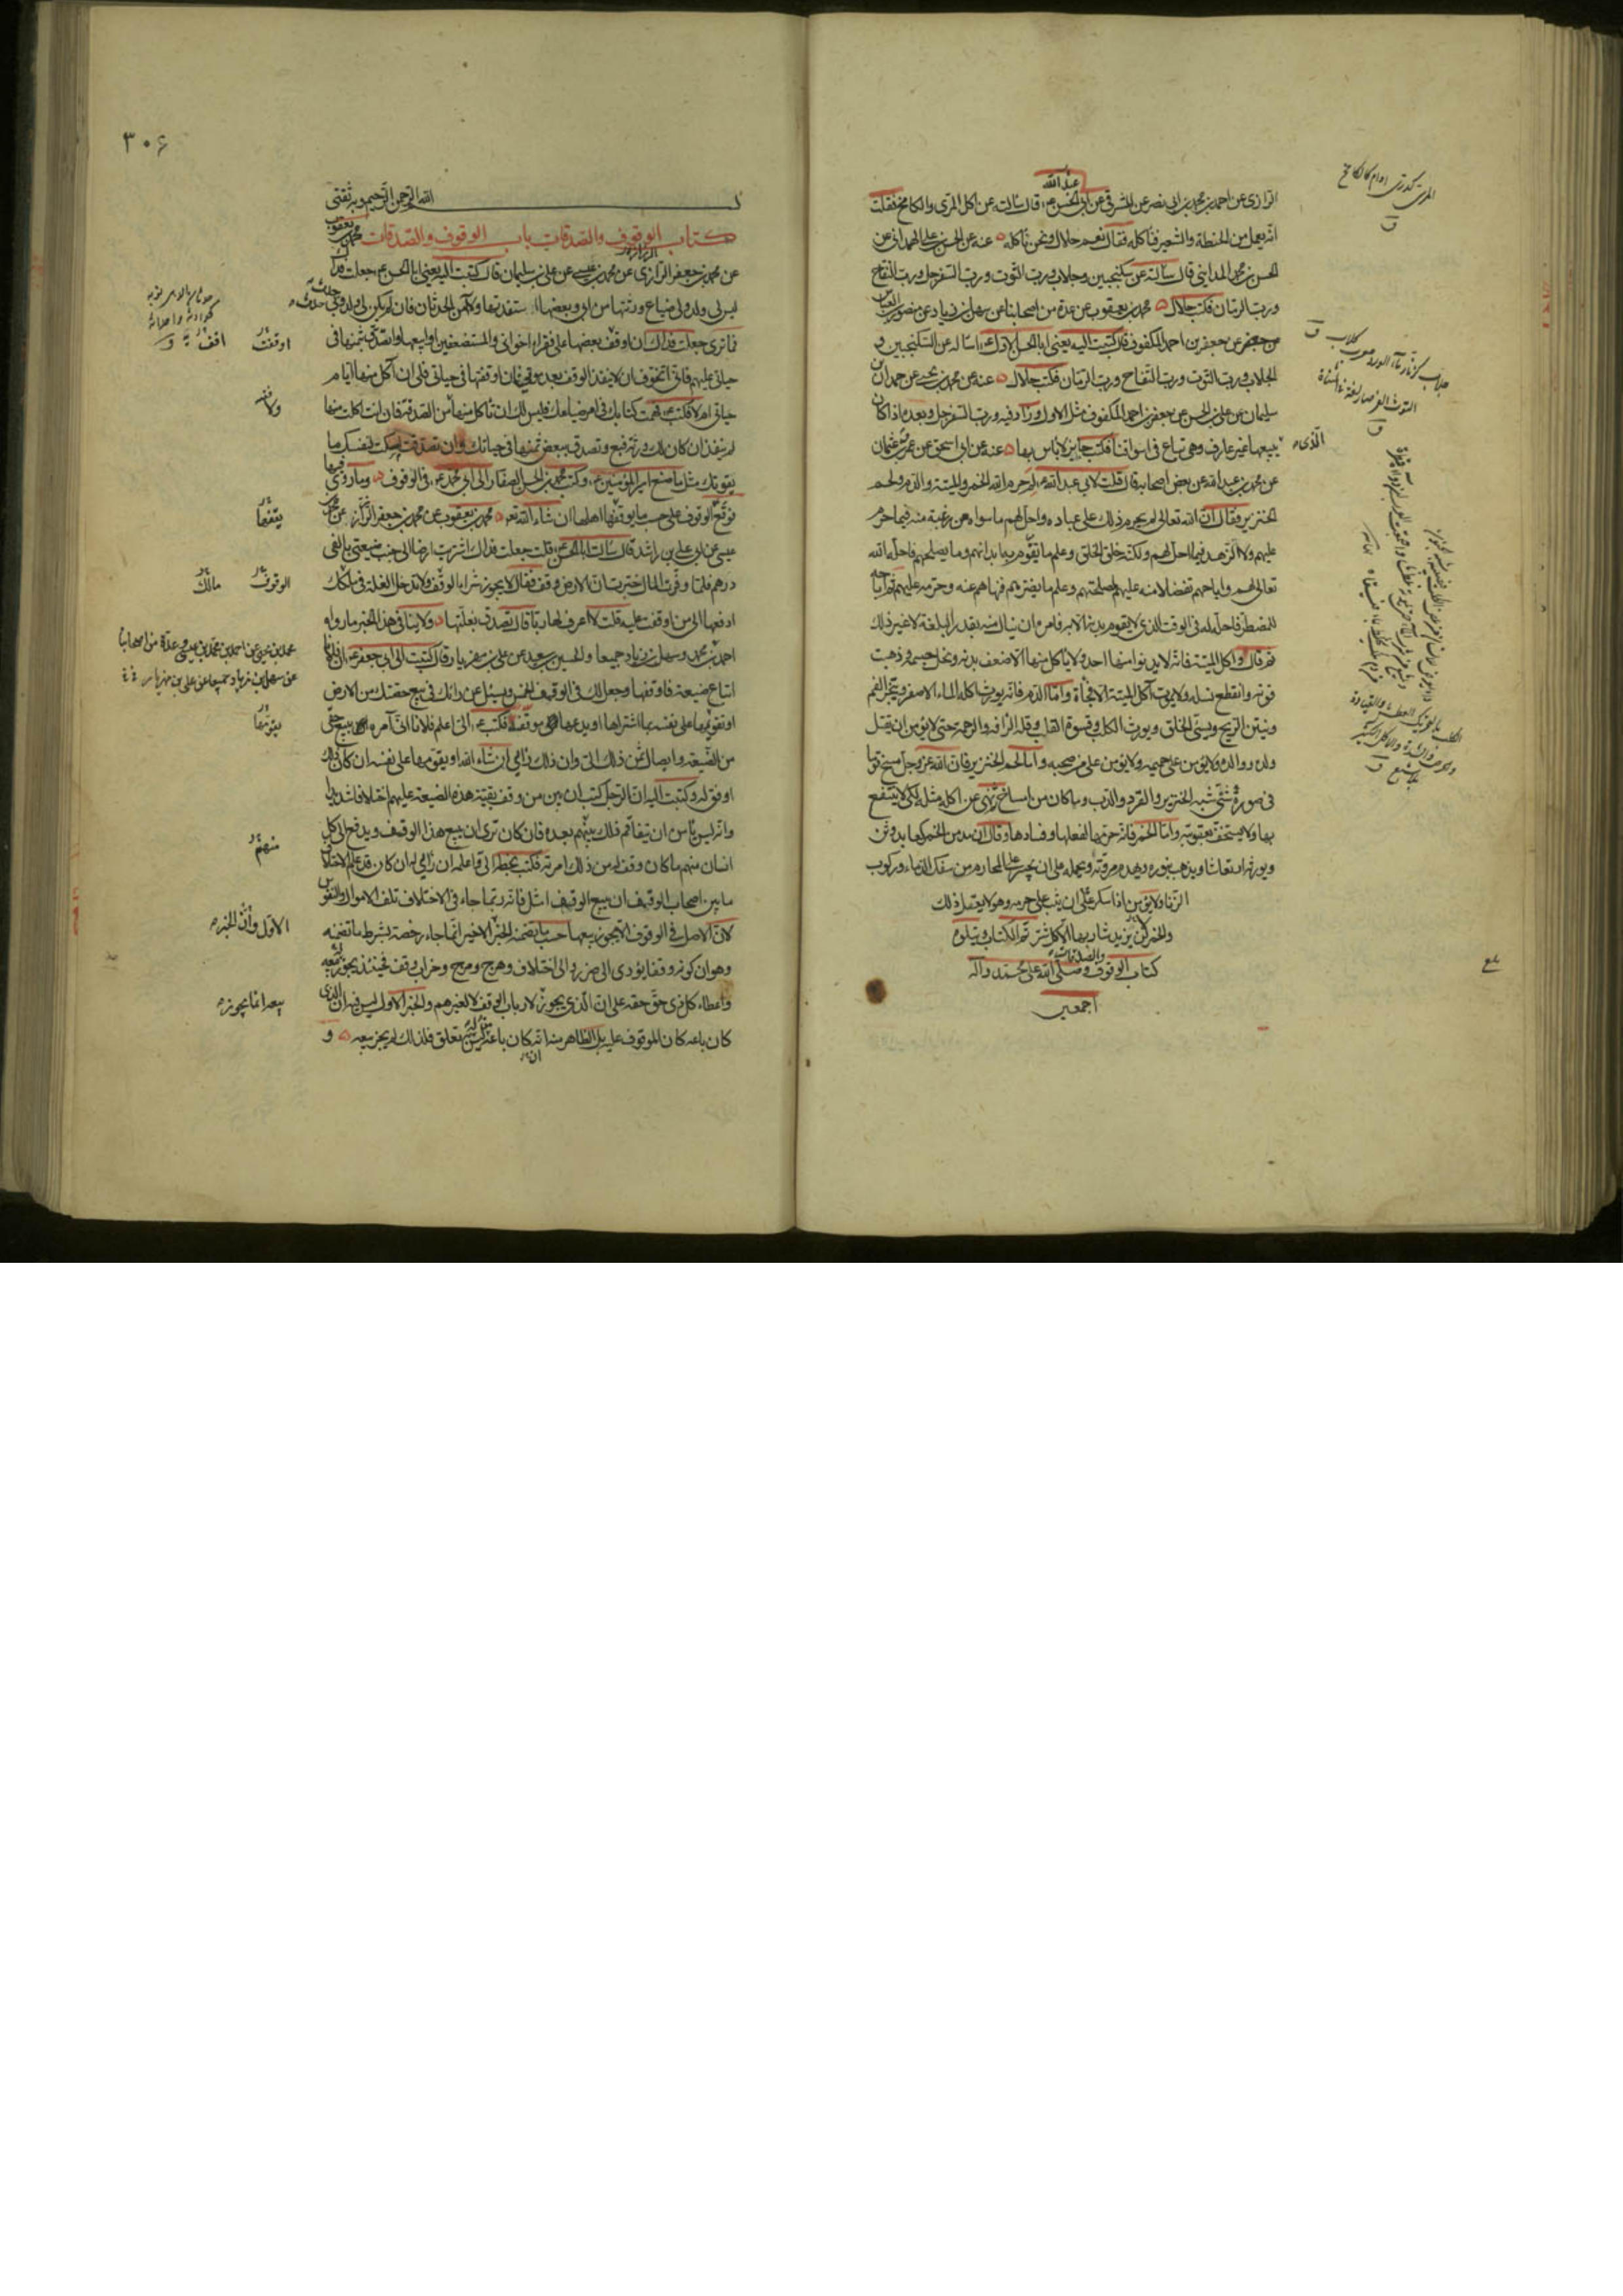 الرازى عن احمد بن محمد بن ابى نصر عن المشرقى عن ابى الحسن ع قال سالته عن اكل المرى والكامخ فقلت
عبد الله
انه يعمل من الحنطة والشعير فناكله فقال نعم حلال ونحن ناكله عنه عن الحسن بن على الهمدانى عن
الحسن بن محمد المداينى قال سالته عن سكنجبين وجلاب ورب التوت ورب السفرجل ورب التفاح
ورب الرمان فكتب حلال محمد بن يعقوب عن عدة من اصحابنا عن سهل بن زياد عن منصور بن العباس
عن جعفر بن احمد المكفوف قال كتبت اليه يعنى ابا الحسن الاول ع اساله عن السكنجبين و
الجلاب ورب التوت ورب التفاح ورب الرمان فكتب حلال عنه عن محمد بن يحيى عن حمدان بن
سليمان عن على بن الحسن عن جعفر بن احمد المكفوف مثل الاول وزاد فيه ورب السفرجل وبعده اذا كان
الذى يبيعها غير عارف وهى تباع فى اسواقنا فكتب جايز لا باس بها عنه عن ابى اسحق عن عمرو بن عثمان
عن محمد بن عبد الله عن بعض اصحابه قال قلت لابى عبد الله ع لم حرم الله الخمر والميتة والدم ولحم
الخنزير وقال ان الله تعالى لم يحرم ذلك على عباده واحل لهم ما سواه من رغبة منه فيما حرم
عليهم ولا زهد فيما احل لهم ولكنه خلق الخلق وعلم ما يقوم به ابدانهم وما يصلحهم فاحله الله
تعالى لهم واباحهم تفضلا منه عليهم لمصلحتهم وعلم ما يضرهم فنهاهم عنه وحرمه عليهم ثم اباحه
للمضطر فاحله له فى الوقت الذى لا يقوم بدنه الا به فامره ان ينال منه بقدر البلغة لا غير ذلك
ثم قال واكل الميتة فانه لا يدنو منها احد ولا ياكل منها الا ضعف بدنه ونحل جسمه وذهبت
قوته وانقطع نسله ولا يموت آكل الميتة الا فجأة واما الدم فانه يورث اكله الماء الاصفر ويبخر الفم
وينتن الريح ويسئ الخلق ويورث الكلب وقسوة القلب وقلة الرافة والرحمة حتى لا يؤمن ان يقتل
ولده ووالده ولا يؤمن على حميمه ولا يؤمن على من صحبه واما لحم الخنزير فان الله عز وجل مسخ قوما
فى صورة شتى شبه الخنزير والقرد والدب وما كان من امساخ ثم نهى عن اكله مثله لكى لا ينتفع
بها ولا يستخف بعقوبته واما الخمر فانه حرمها لفعلها وفسادها وقال ان مدمن الخمر كعابد وثن
ويورثه ارتعاشا ويذهب بنوره ويهدم مروته ويحمله على ان يجسر على المحارم من سفك الدماء وركوب
الزنا ولا يؤمن اذا سكر على ان يثب على حرمه وهو لا يعقل ذلك
والخمر لن يزيد شاربها الا كل شر تم الكتاب ويتلوه
كتاب الوقوف والصدقات وصلى الله على محمد وآله
اجمعين
٣٠۶
الله الرحمن الرحيم وبه ثقتى
كتاب الوقوف والصدقات باب الوقوف والصدقات محمد بن يعقوب
عن محمد بن جعفر الرازى عن محمد بن عيسى عن على بن سليمان قال كتبت اليه يعنى ابا الحسن ع جعلت فداك
ليس لى ولد ولى ضياع ورثتها من ابى وبعضها استفدتها ولا آمن الحدثان فان لم يكن لى ولد وبى حدث حدث
فما ترى جعلت فداك ان اوقف بعضها على فقراء اخوانى والمستضعفين او ابيعها واتصدق بثمنها فى
حياتى عليهم فانى اتخوف ان لا ينفذ الوقف بعد موتى فان اوقفتها فى حياتى فلى ان آكل منها ايام
حياتى ام لا فكتب ع فهمت كتابك فى امر ضياعك فليس لك ان تاكل منها من الصدقة فان انت اكلت منها
لم ينفذ ان كان لك ورثة فبع وتصدق ببعض ثمنها فى حياتك وان تصدقت امسكت لنفسك ما
يقوتك مثل ما صنع امير المؤمنين ع وكتب محمد بن الحسن الصفار الى ابى محمد ع فى الوقوف وما روى فيها
فوقع الوقوف على حسب ما يوقفها اهلها ان شاء الله تع محمد بن يعقوب عن محمد بن جعفر الرزاز عن محمد بن
عيسى عن ابى على بن راشد قال سالت ابا الحسن ع قلت جعلت فداك اشتريت ارضا الى جنب ضيعتى بالفى
درهم فلما وفرت المال خبرت ان الارض وقف فقال لا يجوز شراء الوقف ولا تدخل الغلة فى ملكك
ادفعها الى من اوقفت عليه قلت لا اعرف لها ربا قال تصدق بغلتها ولا ينافى هذا الخبر ما رواه
احمد بن محمد وسهل بن زياد جميعا والحسين بن سعيد عن على بن مهزيار قال كتبت الى ابى جعفر ع ان فلانا
ابتاع ضيعة فاوقفها وجعل لك فى الوقف الخمس ويسئل عن رائك فى بيع حقك من الارض
او تقويمها على نفسه بما اشتراها او يدعها موقفة فكتب ع الى اعلم فلانا انى آمره ببيع حقى
من الضيعة وايصال ثمن ذلك الى وان ذلك رائى ان شاء الله او يقومها على نفسه ان كان ذلك
اوفق له وكتبت اليه ان الرجل كتب ان بين من وقف بقية هذه الضيعة عليهم اختلافا شديدا
وانه ليس يأمن ان يتفاقم ذلك بينهم بعده فان كان ترى ان يبيع هذا الوقف ويدفع الى كل
انسان منهم ما كان وقف له من ذلك امرته فكتب بخطه الى واعلمه ان رائى له ان كان قد علم الاختلاف
ما بين اصحاب الوقف ان بيع الوقف امثل فانه ربما جاء فى الاختلاف تلف الاموال والنفوس
لان الاصل فى الوقوف الا يجوز بيعها حسب ما تضمنه الخبر الاخير انما جاء رخصة بشرط ما تضمنه
وهو ان كونه وقفا يؤدى الى ضرر والى اختلاف وهرج ومرج وخراب وقف فحينئذ يجوز بيعه
واعطاء كل ذى حق حقه على ان الذى يجوز لارباب الوقف لا لغيرهم والخبر الاول ليس فيه ان الذى
كان باعه كان الموقوف عليه بل الظاهر منه انه كان باعه من ليس له تعلق فلذلك لم يجز بيعه و
اوقفت
اقف
يقفها
الوقوف
مالك
محمد بن يحيى عن احمد بن محمد بن عيسى وعدة من اصحابنا
عن سهل بن زياد جميعا عن على بن مهزيار
منهم
الاول وأن الخبر
بيعه انما يجوز